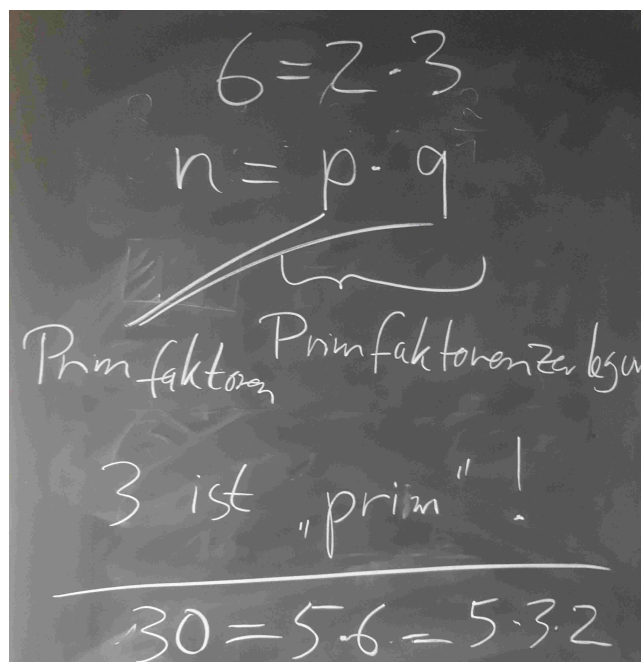 6 = 2 · 3
n = p · q
Primfaktoren Primfaktorenzerlegun
3 ist „prim“!
30 = 5·6 = 5·3·2